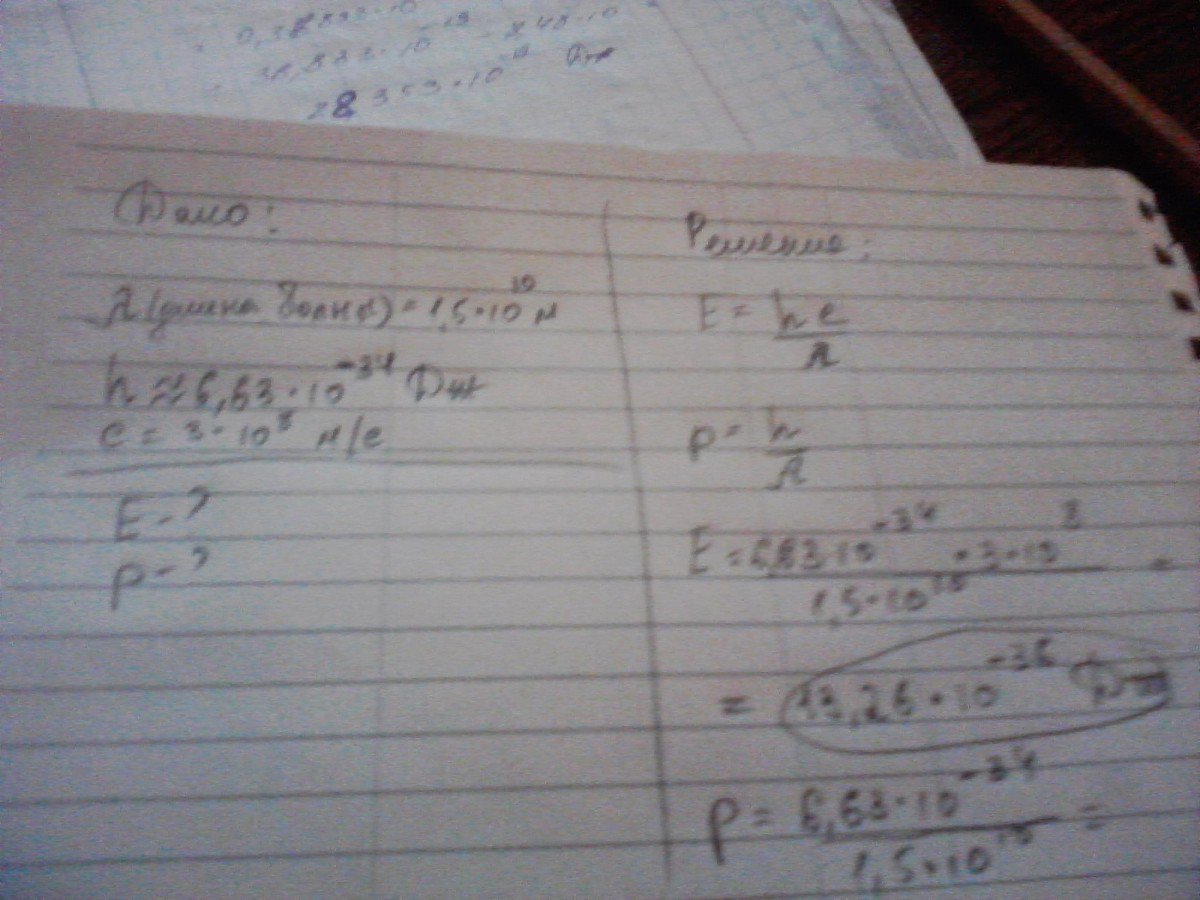 Дано:
λ (длина волны) = 1,5·10¹⁰ м
h ≈ 6,63·10⁻³⁴ Дж
c = 3·10⁸ м/с
E - ?
p - ?
Решение:
E = hc/λ
p = h/λ
E = 6,63·10⁻³⁴·3·10⁸/1,5·10¹⁰ =
= 13,26·10⁻³⁶ Дж
p = 6,63·10⁻³⁴/1,5·10¹⁰ =